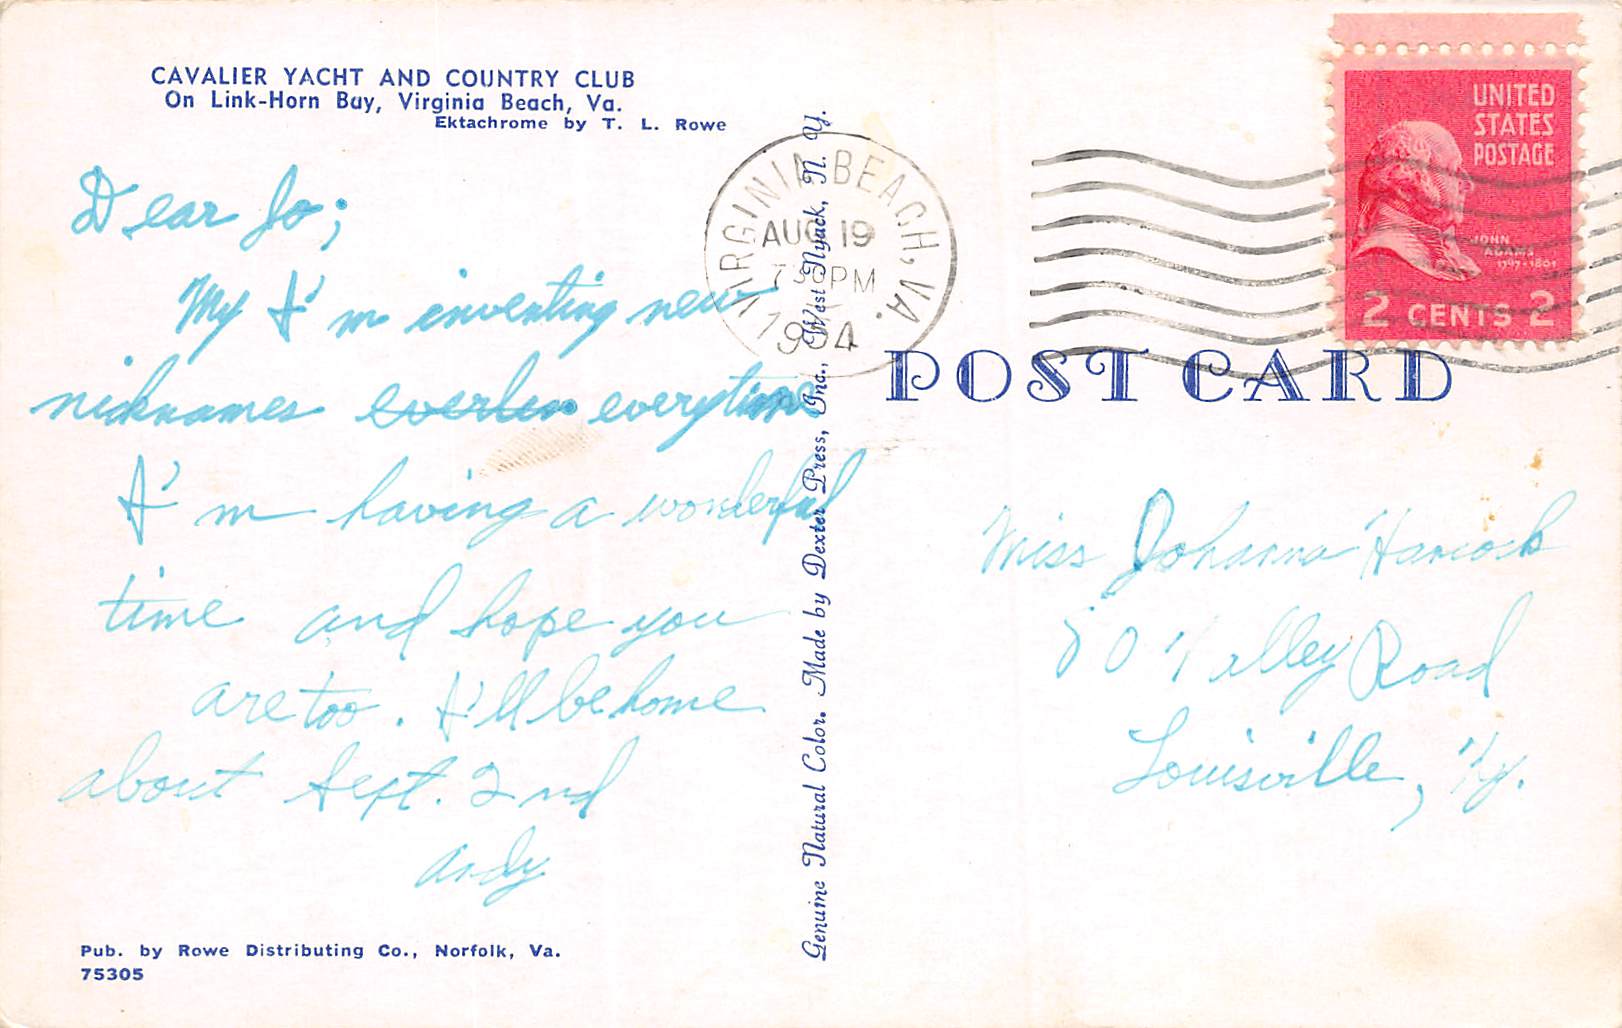 CAVALIER YACHT AND COUNTRY CLUB
On Link-Horn Bay, Virginia Beach, Va.
Ektachrome by T. L. Rowe
Dear Jo;
My I'm inventing new
nicknames everytime
I'm having a wonderful
time and hope you
are too. I'll be home
about Sept. 2nd
Andy
Pub. by Rowe Distributing Co., Norfolk, Va.
75305
Genuine Natural Color. Made by Dexter Press, Inc., West Nyack, N. Y.
VIRGINIA BEACH, VA.
AUG 19
7 30 PM
1954
UNITED
STATES
POSTAGE
JOHN
ADAMS
1797-1801
2 CENTS 2
POST CARD
Miss Johanna Hancock
80 Valley Road
Louisville, Ky.